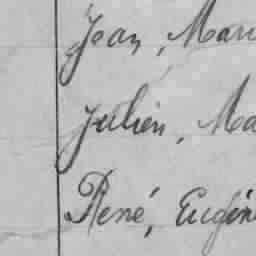 Jean, Mari
Julien, Ma
René, Eugén